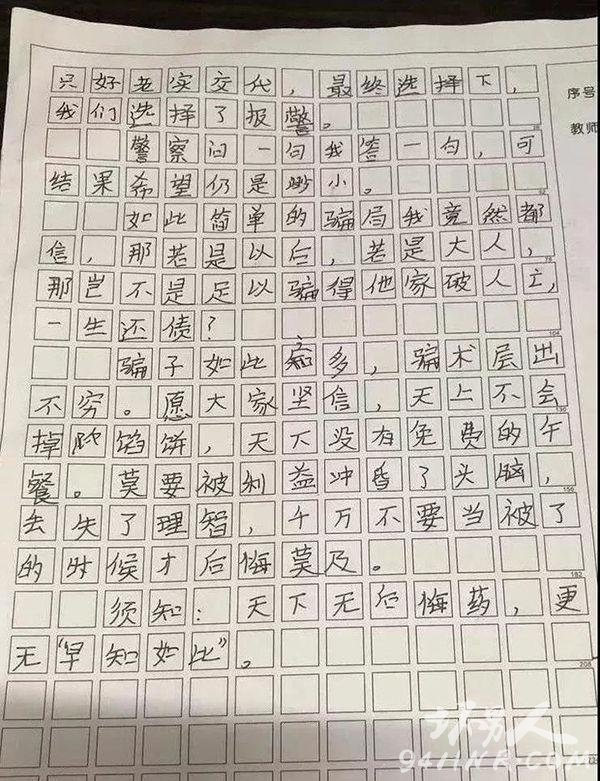 只好老实交代，最终选择下，
序号
我们选择了报警。
教师
26
警察问一句我答一句，可
结果希望仍是渺小。
52
如此简单的骗局我竟然都
信，那若是以后，若是大人，
78
那岂不是足以骗得他家破人亡，
一生还债？
104
骗子如此之多，骗术层出
不穷。愿大家坚信，天上不会
130
掉馅饼，天下没有免费的午
餐。莫要被利益冲昏了头脑，
156
去失了理智，千万不要当被了
的时候才后悔莫及。
182
须知：天下无后悔药，更
无“早知如此”。
208
环男人
941INR.COM